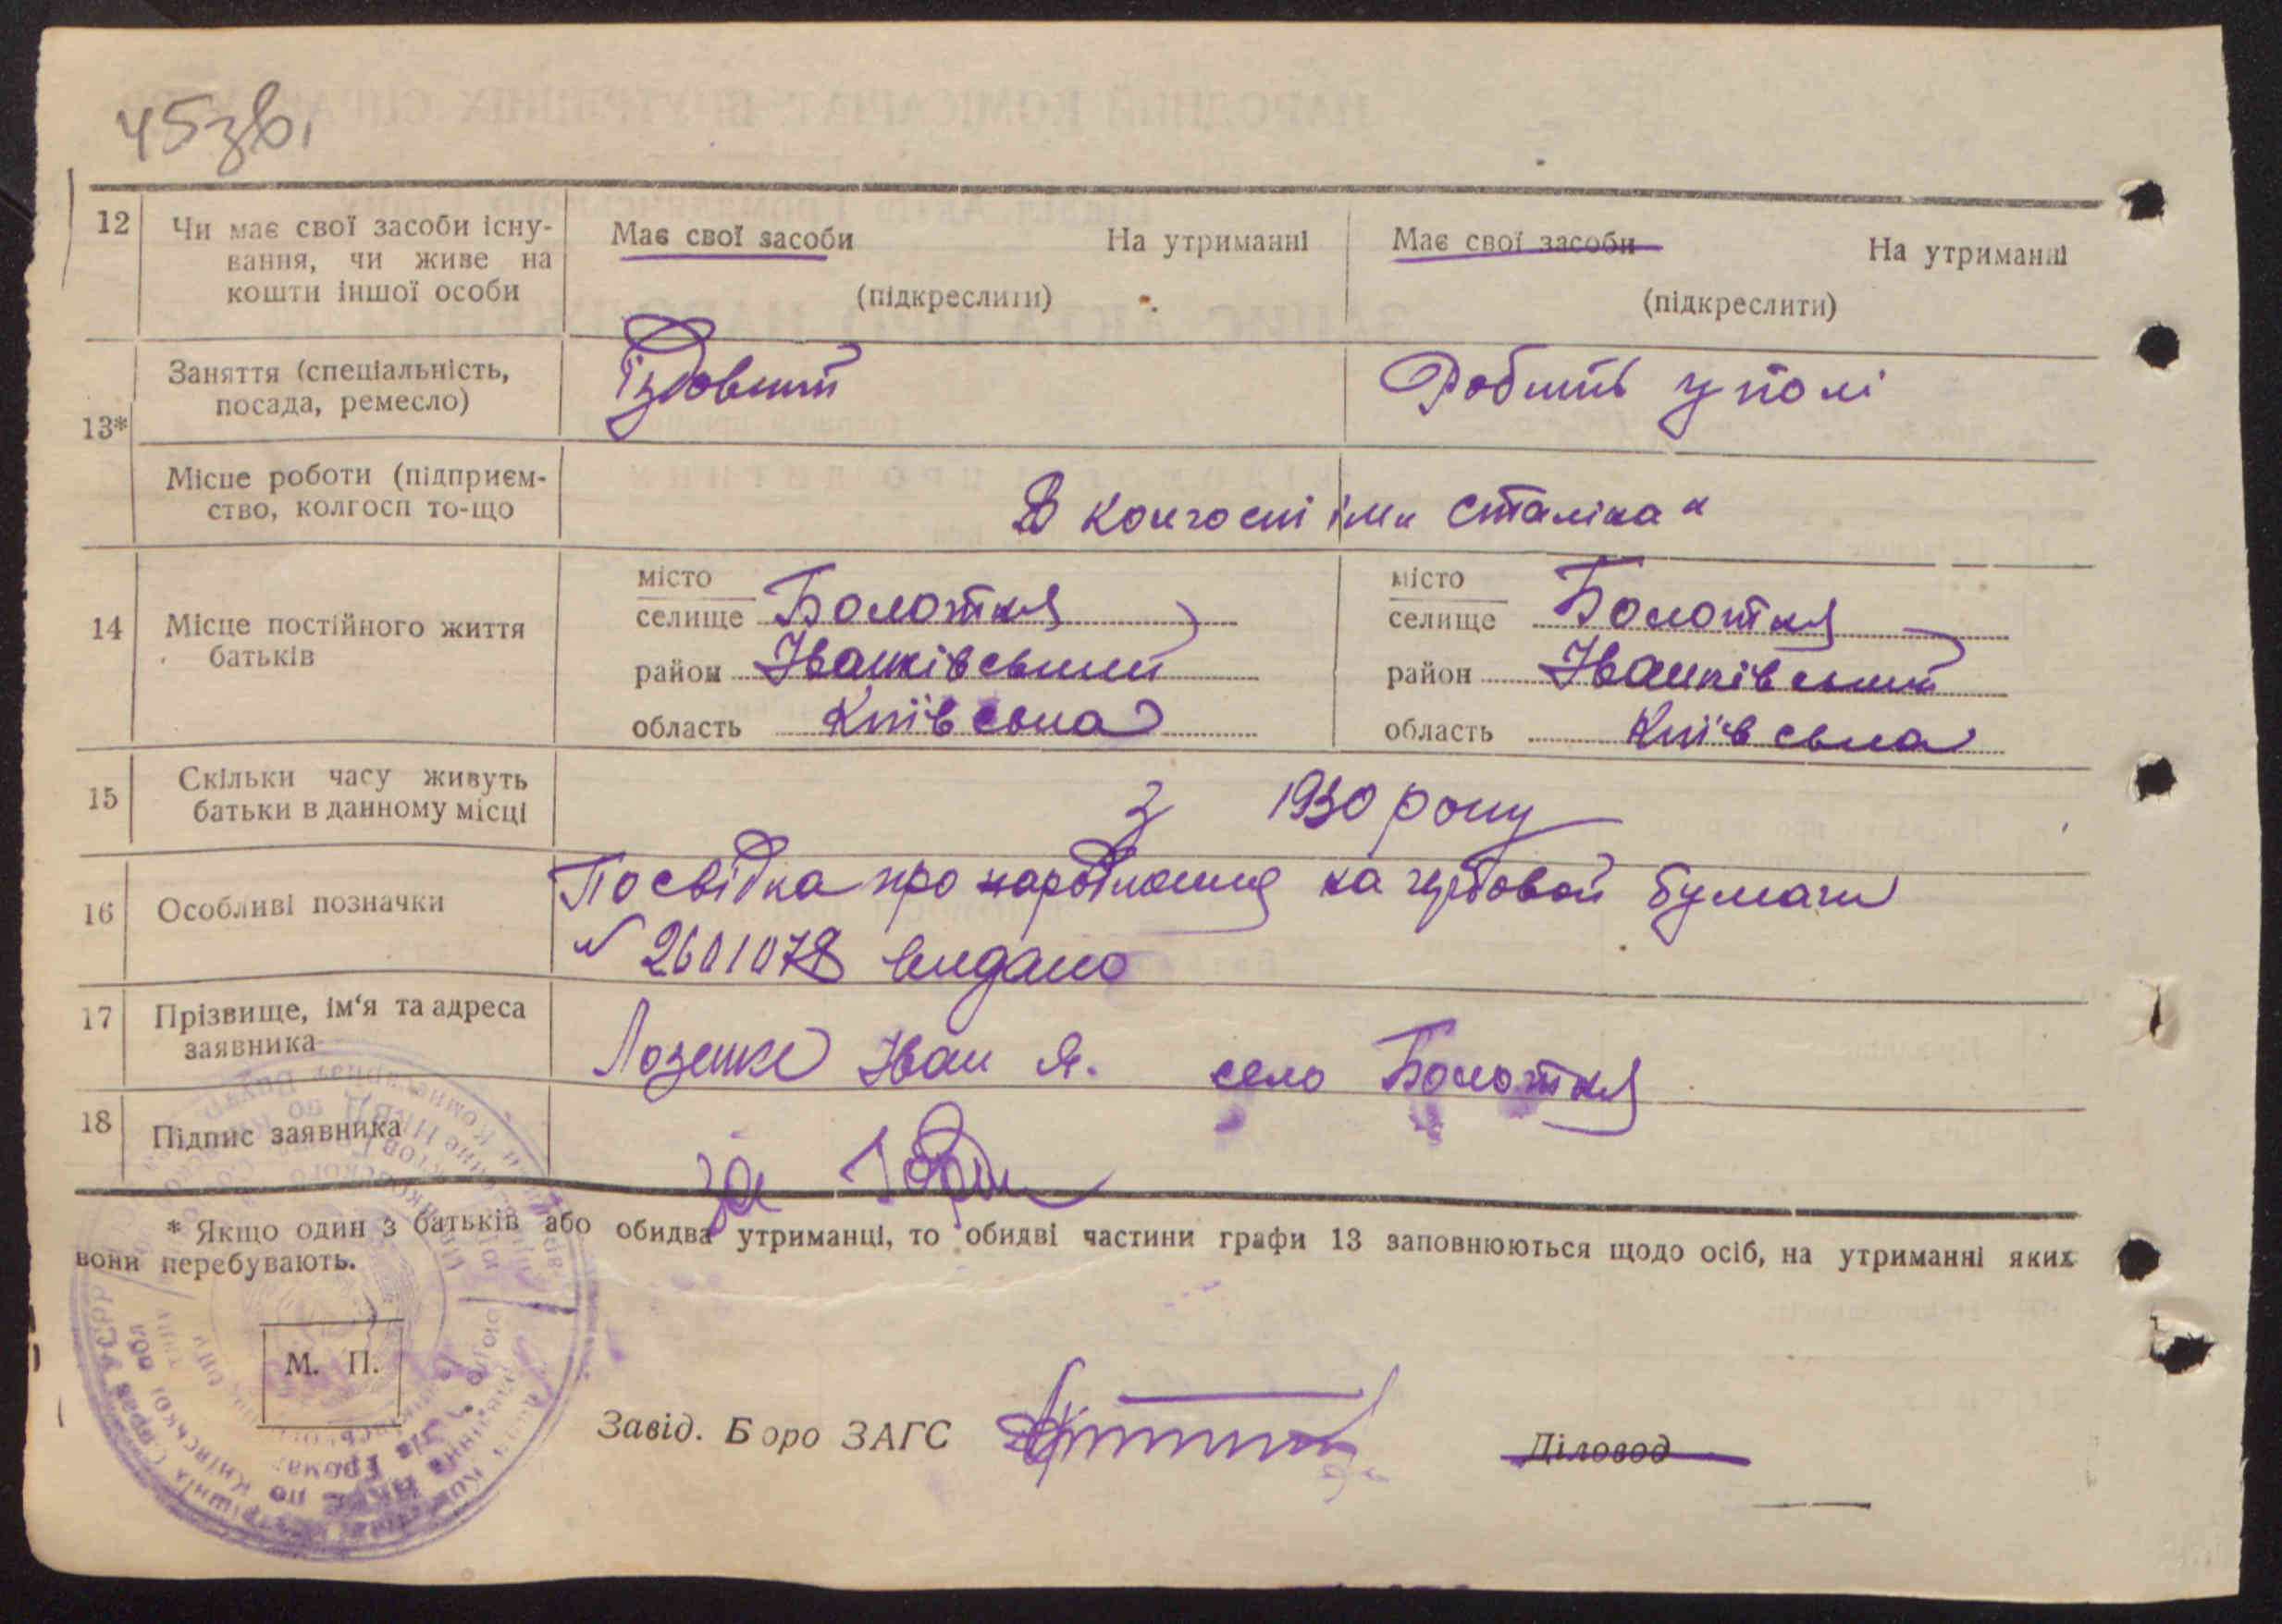 45зв.
12 Чи має свої засоби існу- Має свої засоби На утриманні Має свої засоби На утриманні
вання, чи живе на
кошти іншої особи (підкреслити) (підкреслити)
13* Заняття (спеціальність, Їздовий Робить у полі
посада, ремесло)
Місце роботи (підприєм- В колгоспі ім" Сталіна"
ство, колгосп то-що
14 Місце постійного життя
батьків
місто
селище Болотня
район Іванківський
область Київська
місто
селище Болотня
район Іванківський
область Київська
15 Скільки часу живуть з 1930 року
батьки в данному місці
16 Особливі позначки Посвідка про народження на гербовой бумаги
№ 2601078 видано
17 Прізвище, ім'я та адреса Лозенко Іван Я. село Болотня
заявника
18 Підпис заявника за
* Якщо один з батьків або обидва утриманці, то обидві частини графи 13 заповнюються щодо осіб, на утриманні яких
вони перебувають.
М. П.
Завід. Бюро ЗАГС Діловод